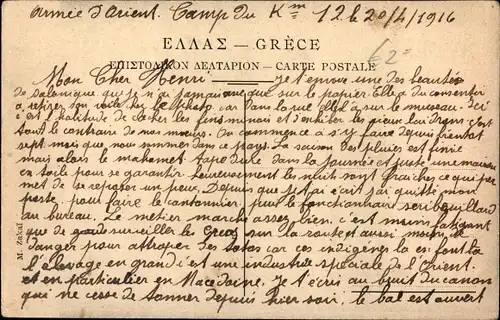 Armée d'Orient. Camp du Km 12 le 20/4/1916
ΕΛΛΑΣ — GRÈCE
€ 2
ΕΠΙΣΤΟΛΙΚΟΝ ΔΕΛΤΑΡΙΟΝ — CARTE POSTALE
Mon Cher Henri. Je t'envoie une des beautés
de Salonique que je n'ai jamais vue que sur le papier. Elle a du consentir
a retirer son voile chez le Photo car dans la rue elle l a sur le museau. Ici
c'est l'habitude de cacher les
tout le contraire de nos moeurs. On commence a s'y faire depuis bientot
sept mois que nous sommes dans ce pays. La saison des pluies est finie
mais alors le mahomet tape dur dans la journée et juste une maison
en toile pour se garantir heureusement les nuits sont fraiches ce qui per
met de se reposer un peu. Depuis que je t'ai écrit j'ai quitté mon
poste pour faire le cantonnier puis le fonctionnaire scribouillard
au bureau. Le metier marche assez bien. c'est moins fatigant
que de surveiller les Grecs sur la route et aussi moins de
danger pour attraper des totos car ces indigènes la en font
l'élevage en grand c'est une industrie spéciale de l'Orient
et en particulier en Macédoine. Je t'écris au bruit du canon
qui ne cesse de tonner depuis hier soir. le bal est ouvert
M. Zakaï